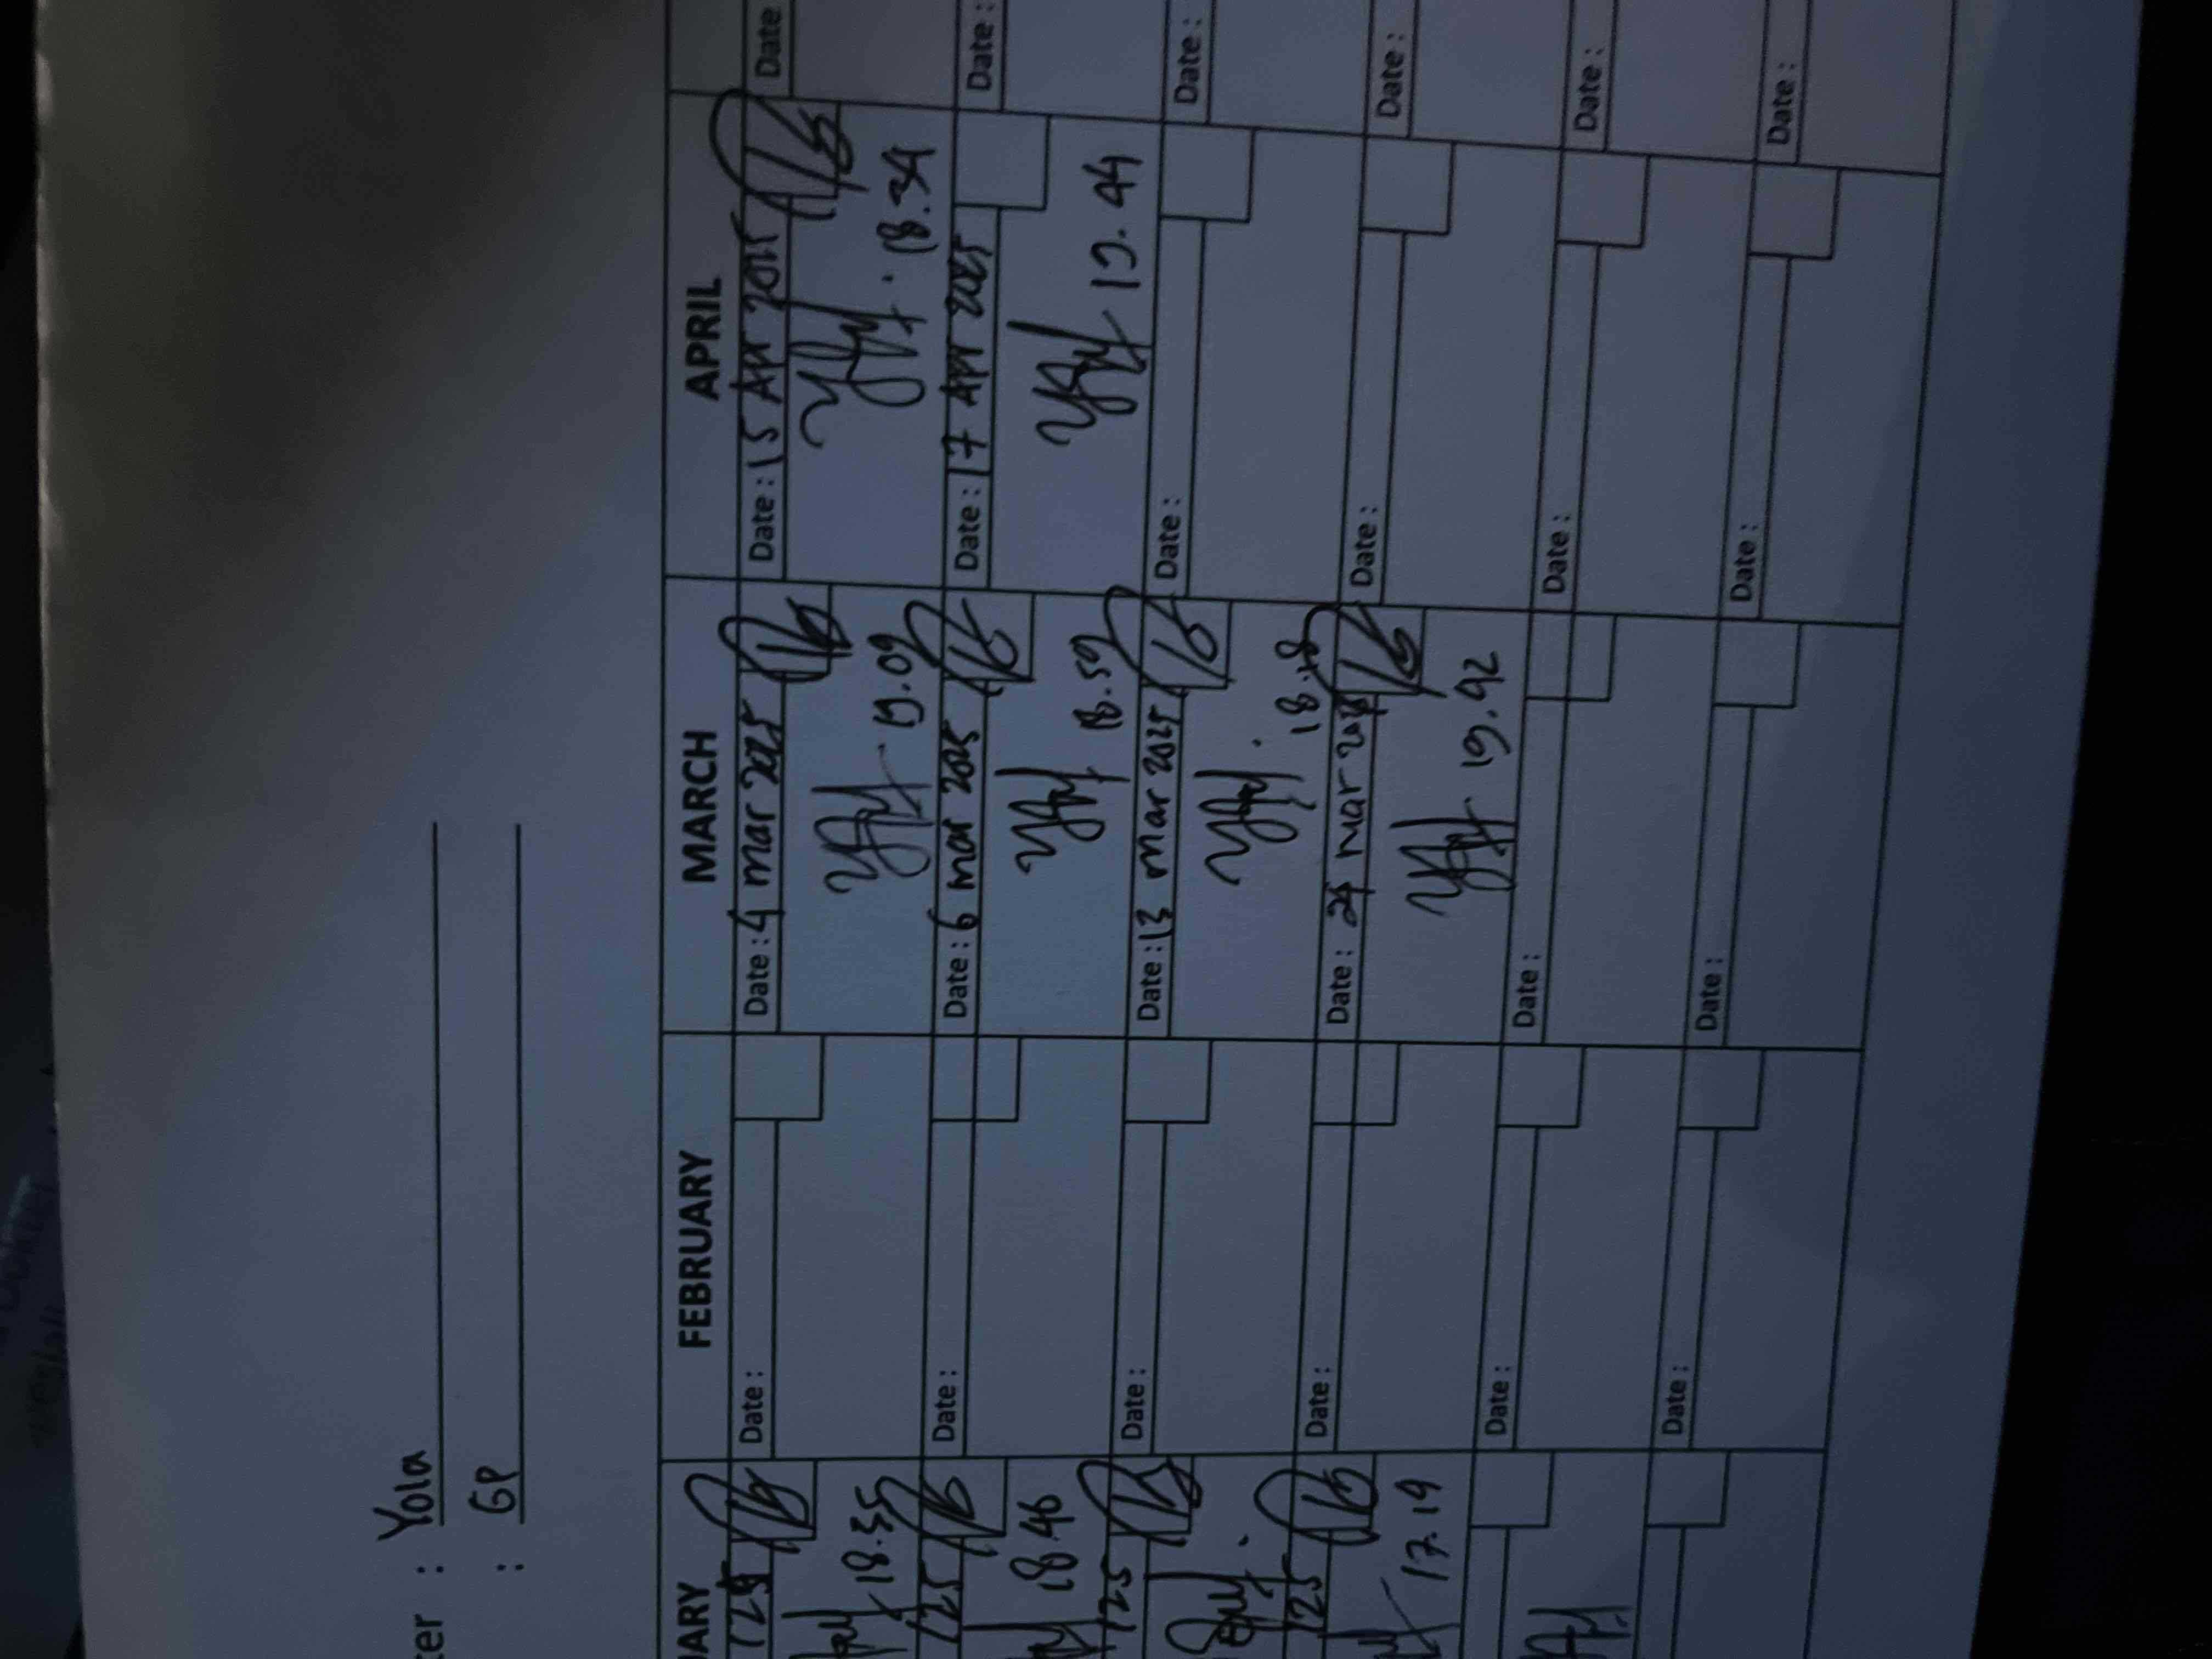 ter : Yola
: GP
UARY FEBRUARY MARCH APRIL
125 Date : Date : 4 mar 2025 Date : 15 Apr 2025 Date
18.35 19.09 18.34
125 Date : Date : 6 mar 2025 Date : 17 Apr 2025 Date :
18.46 18.59 19.44
125 Date : Date : 13 mar 2025 Date : Date :
125 Date : Date : mar Date : Date :
17.19 19.42
Date : Date : Date : Date :
Date : Date : Date : Date :